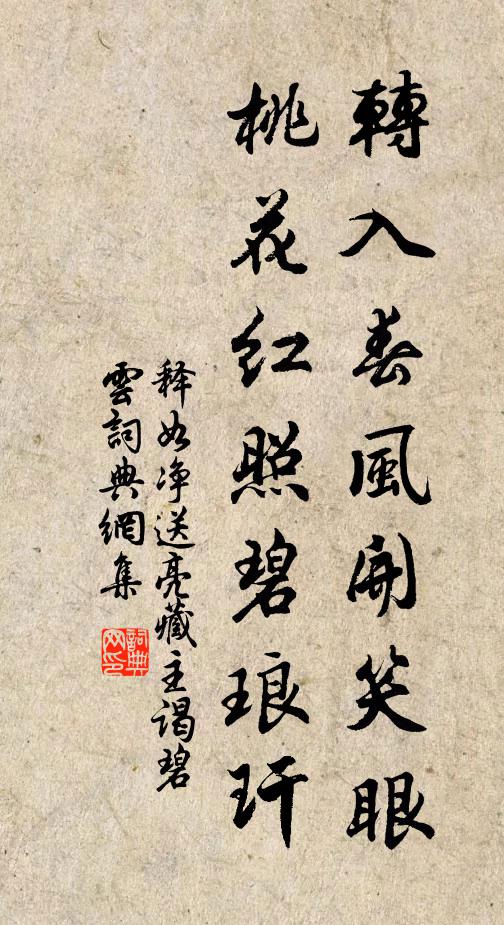 轉入春風開笑眼
桃花紅照碧琅玕
释如净送亮藏主謁碧
雲詞典網集
詞典网印